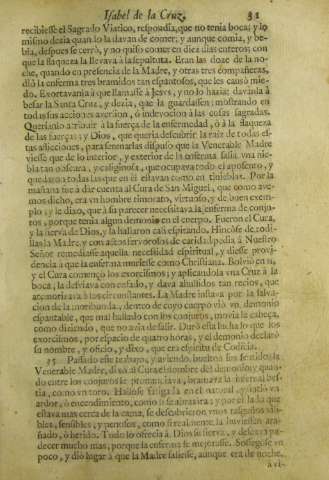 Isabel de la Cruz. 31
recibiesse el Sagrado Viatico, respondia, que no tenia boca; y lo
mismo dezia quando la davan de comer; y aunque comia, y be-
bia, despues se cerrò, y no quiso comer en diez dias enteros; con
que la flaqueza la llevava à la sepultura. Eran las doze de la no-
che, quando en presencia de la Madre, y otras tres compañeras,
diò la enferma tres bramidos tan espantosos, que les causò mie-
do. Exortavanla à que llamasse à Jesvs, y no lo hazia: davanla à
besar la Santa Cruz, y dezia, que la guardassen; mostrando en
todas sus acciones aversion, ò indevocion à las cosas sagradas.
Querianlo atribuir à la fuerça de la enfermedad, ò à la flaqueza
de las fuerças; y Dios, que queria descubrir la raiz de todas es-
tas aflicciones, para serenarlas dispuso que la Venerable Madre
viesse que de lo interior, y exterior de la enferma salia vna nie-
bla tan obscura, y caliginosa, que ocupava todo el aposento, y
quedaron todas las que en èl estavan como en tinieblas. Por la
mañana fue à dar cuenta al Cura de San Miguel, que como ave-
mos dicho, era vn hombre timorato, virtuoso, y de buen exem-
plo; y le dixo, que à su parecer necessitava la enferma de conju-
ros, porque tenia algun demonio en el cuerpo. Fueron el Cura,
y la sierva de Dios, y la hallaron casi espirando. Hincòse de rodi-
llas la Madre, y con actos fervorosos de caridad pedia à Nuestro
Señor remediasse aquella necessidad espiritual, y diesse provi-
dencia à que la enferma muriesse como Christiana. Bolviò en si,
y el Cura començò los exorcismos; y aplicandola vna Cruz à la
boca, la desviava con enfado, y dava ahullidos tan recios, que
atemorizava à los circunstantes. La Madre instava por la salva-
cion de la moribunda, dentro de cuyo cuerpo viò vn demonio
espantable, que mal hallado con los conjuros, movia la cabeça,
como diziendo, que no avia de salir. Durò esta lucha lo que los
exorcismos, por espacio de quatro horas, y el demonio declarò
su nombre, y oficio, y dixo, que era espiritu de Codicia.
35 Passado este trabajo, y aviendo buelto en su sentido la
Venerable Madre, dixo al Cura el nombre del demonio; y quan-
do entre los conjuros se pronunciava, bramava la infernal bes-
tia, como vn toro. Hallòse fatigada en el natural, y sintiò vn
ardor, ò encendimiento, como si se abrasàra; y por el lado que
estava mas cerca de la cama, se descubrieron vnos rasguños
sensibles, y penosos, como si realmente la huvieran ara-
ñado, ò herido. Todo lo ofrecia à Dios su sierva, y deseava pa-
decer mucho mas, porque la enferma se mejorasse. Sossegòse vn
poco, y diò lugar à que la Madre saliesse, aunque era de noche,